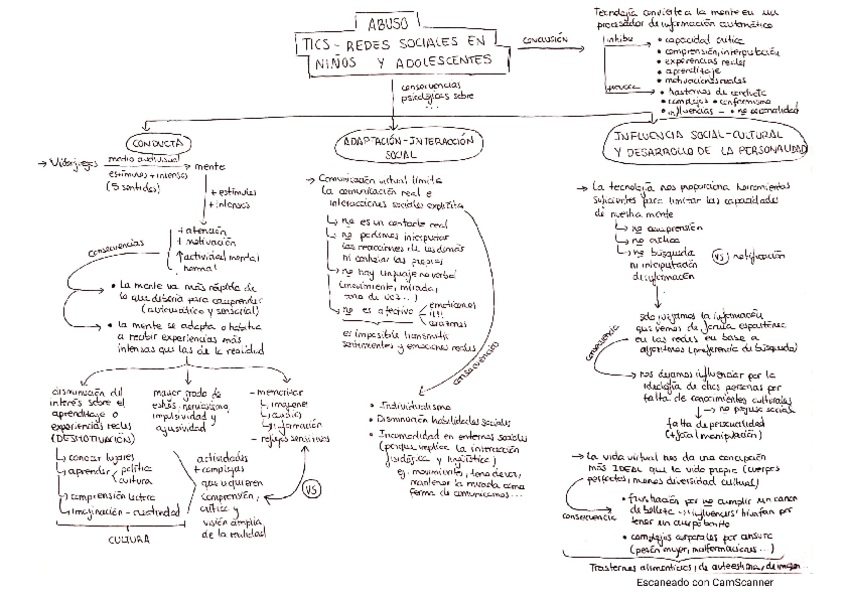 ABUSO
TICS - REDES SOCIALES EN
NIÑOS Y ADOLESCENTES
CONCLUSIÓN
Tecnología convierte a la mente en un
procesador de información automático
inhibe
• capacidad crítica
• comprensión, interpretación
• experiencias reales
• aprendizaje
• motivaciones reales
provoca
• trastornos de conducta
• complejos • conformismo
• influencias - • no racionalidad
consecuencias
psicológicas sobre
...
CONDUCTA
→ Videojuegos
medio audiovisual
estímulos + intensos
(5 sentidos)
→ mente
+ estímulos
+ intensos
+ atención
+ motivación
↑ actividad mental
normal
consecuencias
• la mente va más rápida de
lo que debería para comprender
(automático y sensorial)
• la mente se adapta o habitúa
a recibir experiencias más
intensas que las de la realidad
disminución del
interés sobre el
aprendizaje o
experiencias reales
(DESMOTIVACIÓN)
↳ conocer lugares
↳ aprender
política
cultura
↳ comprensión lectora
↳ imaginación - creatividad
CULTURA
mayor grado de
estrés, nerviosismo,
impulsividad y
agresividad
- memorizar
↳ imágenes
↳ audios
↳ información
- reflejos sensitivos
actividades
+ complejas
que requieren
comprensión,
crítica y
visión amplia
de la realidad
VS
ADAPTACIÓN - INTERACCIÓN
SOCIAL
→ Comunicación virtual limita
la comunicación real e
interacciones sociales explícita
↳ no es un contacto real
↳ no podemos interpretar
las reacciones de los demás
ni controlar las propias
↳ no hay lenguaje no verbal
(movimiento, mirada,
tono de voz...)
↳ no es afectivo
emoticonos
!!!!
es imposible transmitir
sentimientos y emociones reales
consecuencia
• Individualismo
• Disminución habilidades sociales
• Incomodidad en entornos sociales
(porque implica la interacción
fisiológica y lingüística)
ej. movimientos, tono de voz,
mantener la mirada como
forma de comunicarnos...
INFLUENCIA SOCIAL - CULTURAL
Y DESARROLLO DE LA PERSONALIDAD
→ La tecnología nos proporciona herramientas
suficientes para limitar las capacidades
de nuestra mente
↳ no comprensión
↳ no crítica
↳ no búsqueda
ni interpretación
de información
VS
notificación
solo viajamos la información
que vemos de forma espontánea
en las redes en base a
algoritmos (preferencia de búsqueda)
consecuencia
→ nos dejamos influenciar por la
ideología de otras personas por
falta de conocimientos culturales
falta de personalidad
(+ fácil manipulación)
→ la vida virtual nos da una concepción
más IDEAL que la vida propia (cuerpos
perfectos, menos diversidad cultural)
consecuencia
• frustración por no cumplir un canon
de belleza → "influencers" triunfan por
tener un cuerpo bonito
• complejos corporales por censura
(pezón mujer, malformaciones...)
Trastornos alimenticios, de autoestima, de imagen...
Escaneado con CamScanner